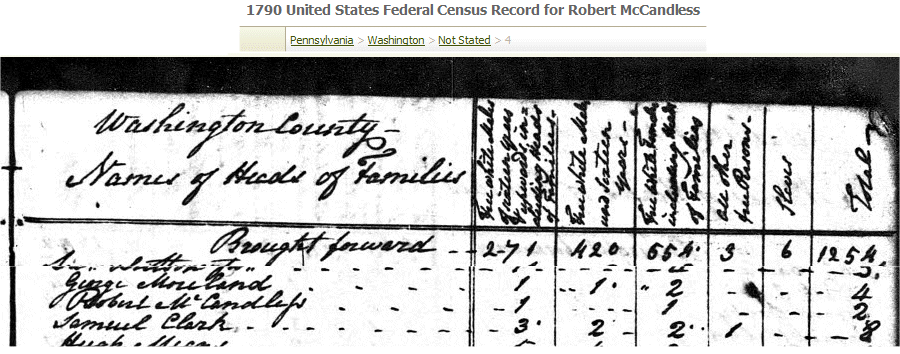 1790 United States Federal Census Record for Robert McCandless
Pennsylvania > Washington > Not Stated > 4
Washington County
Names of Heads of Families
Free white Males Sixteen years & upwards, including Heads of Families.
Free white Males under Sixteen years
Free white Females including Heads of Families
All other free Persons
Slaves
Total
Brought forward 271 420 554 3 6 1254
George Moreland 1 1 2 4
Robert McCandless 1 1 2
Samuel Clark 3 2 2 1 8
Hugh